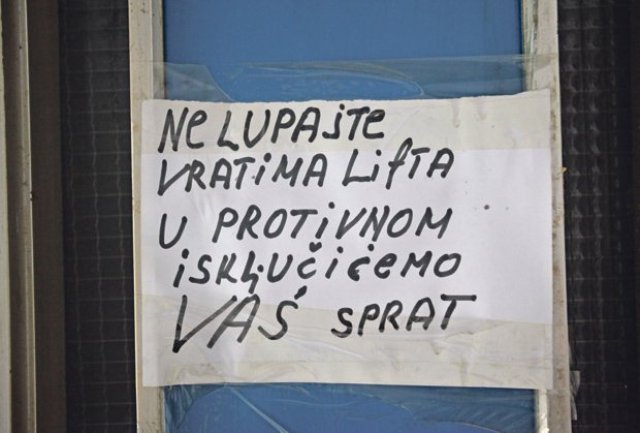 Ne LUPAJTE
VRATiMA LifTA
U PROTiVNOM
isključićemo
VAŠ SPRAT